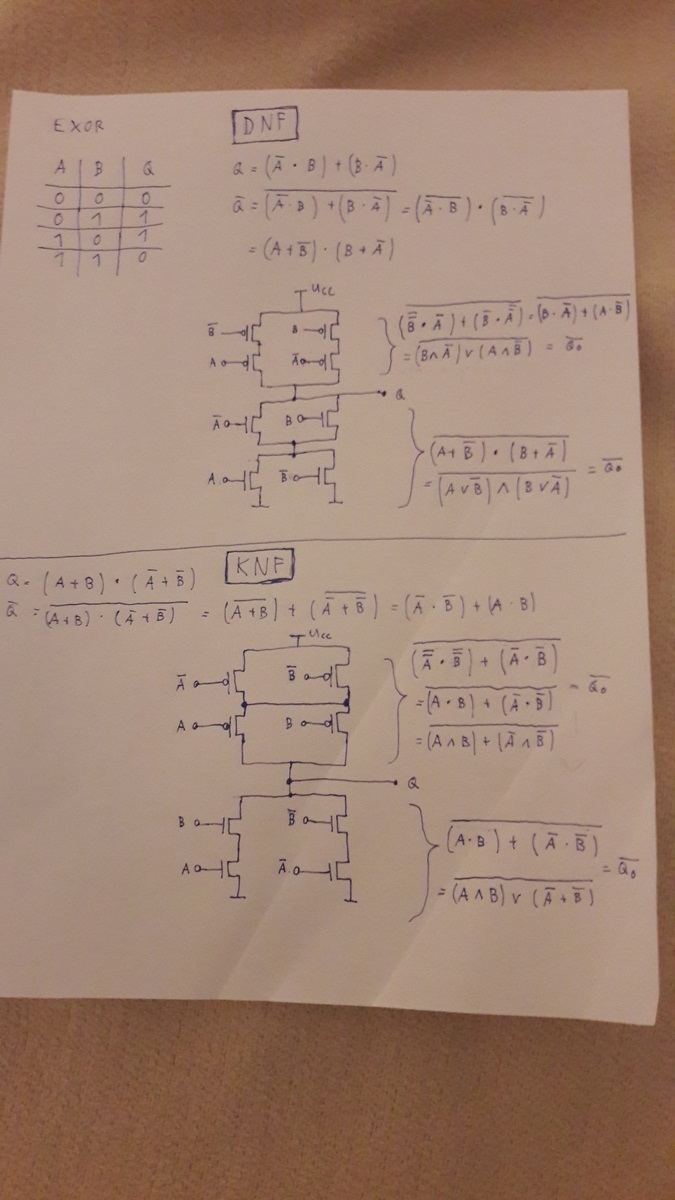 EXOR
DNF
A B Q
0 0 0
0 1 1
1 0 1
1 1 0
Q = (A̅ · B) + (B · A̅)
Q̅ = \overline{(A̅ · B) + (B · A̅)} = (\overline{A̅ · B}) · (\overline{B · A̅})
= (A + B̅) · (B + A̅)
Ucc
B̅
B
A
A̅
\overline{(B̿ · A̅) + (B̅ · A̿)} = \overline{(B · A̅) + (A · B̅)}
= \overline{(B ∧ A̅) ∨ (A ∧ B̅)} = \overline{Q₀}
Q
A̅
B
A
B̅
\overline{(A + B̅) · (B + A̅)}
= \overline{(A ∨ B̅) ∧ (B ∨ A̅)} = \overline{Q₀}
KNF
Q = (A + B) · (A̅ + B̅)
Q̅ = \overline{(A + B) · (A̅ + B̅)} = (\overline{A + B}) + (\overline{A̅ + B̅}) = (A̅ · B̅) + (A · B)
Ucc
A̅
B̅
A
B
\overline{(A̿ · B̿) + (A̅ · B̅)}
= \overline{(A · B) + (A̅ · B̅)} = \overline{Q₀}
= \overline{(A ∧ B) + (A̅ ∧ B̅)}
Q
B
B̅
A
A̅
\overline{(A · B) + (A̅ · B̅)}
= \overline{(A ∧ B) ∨ (A̅ + B̅)} = \overline{Q₀}